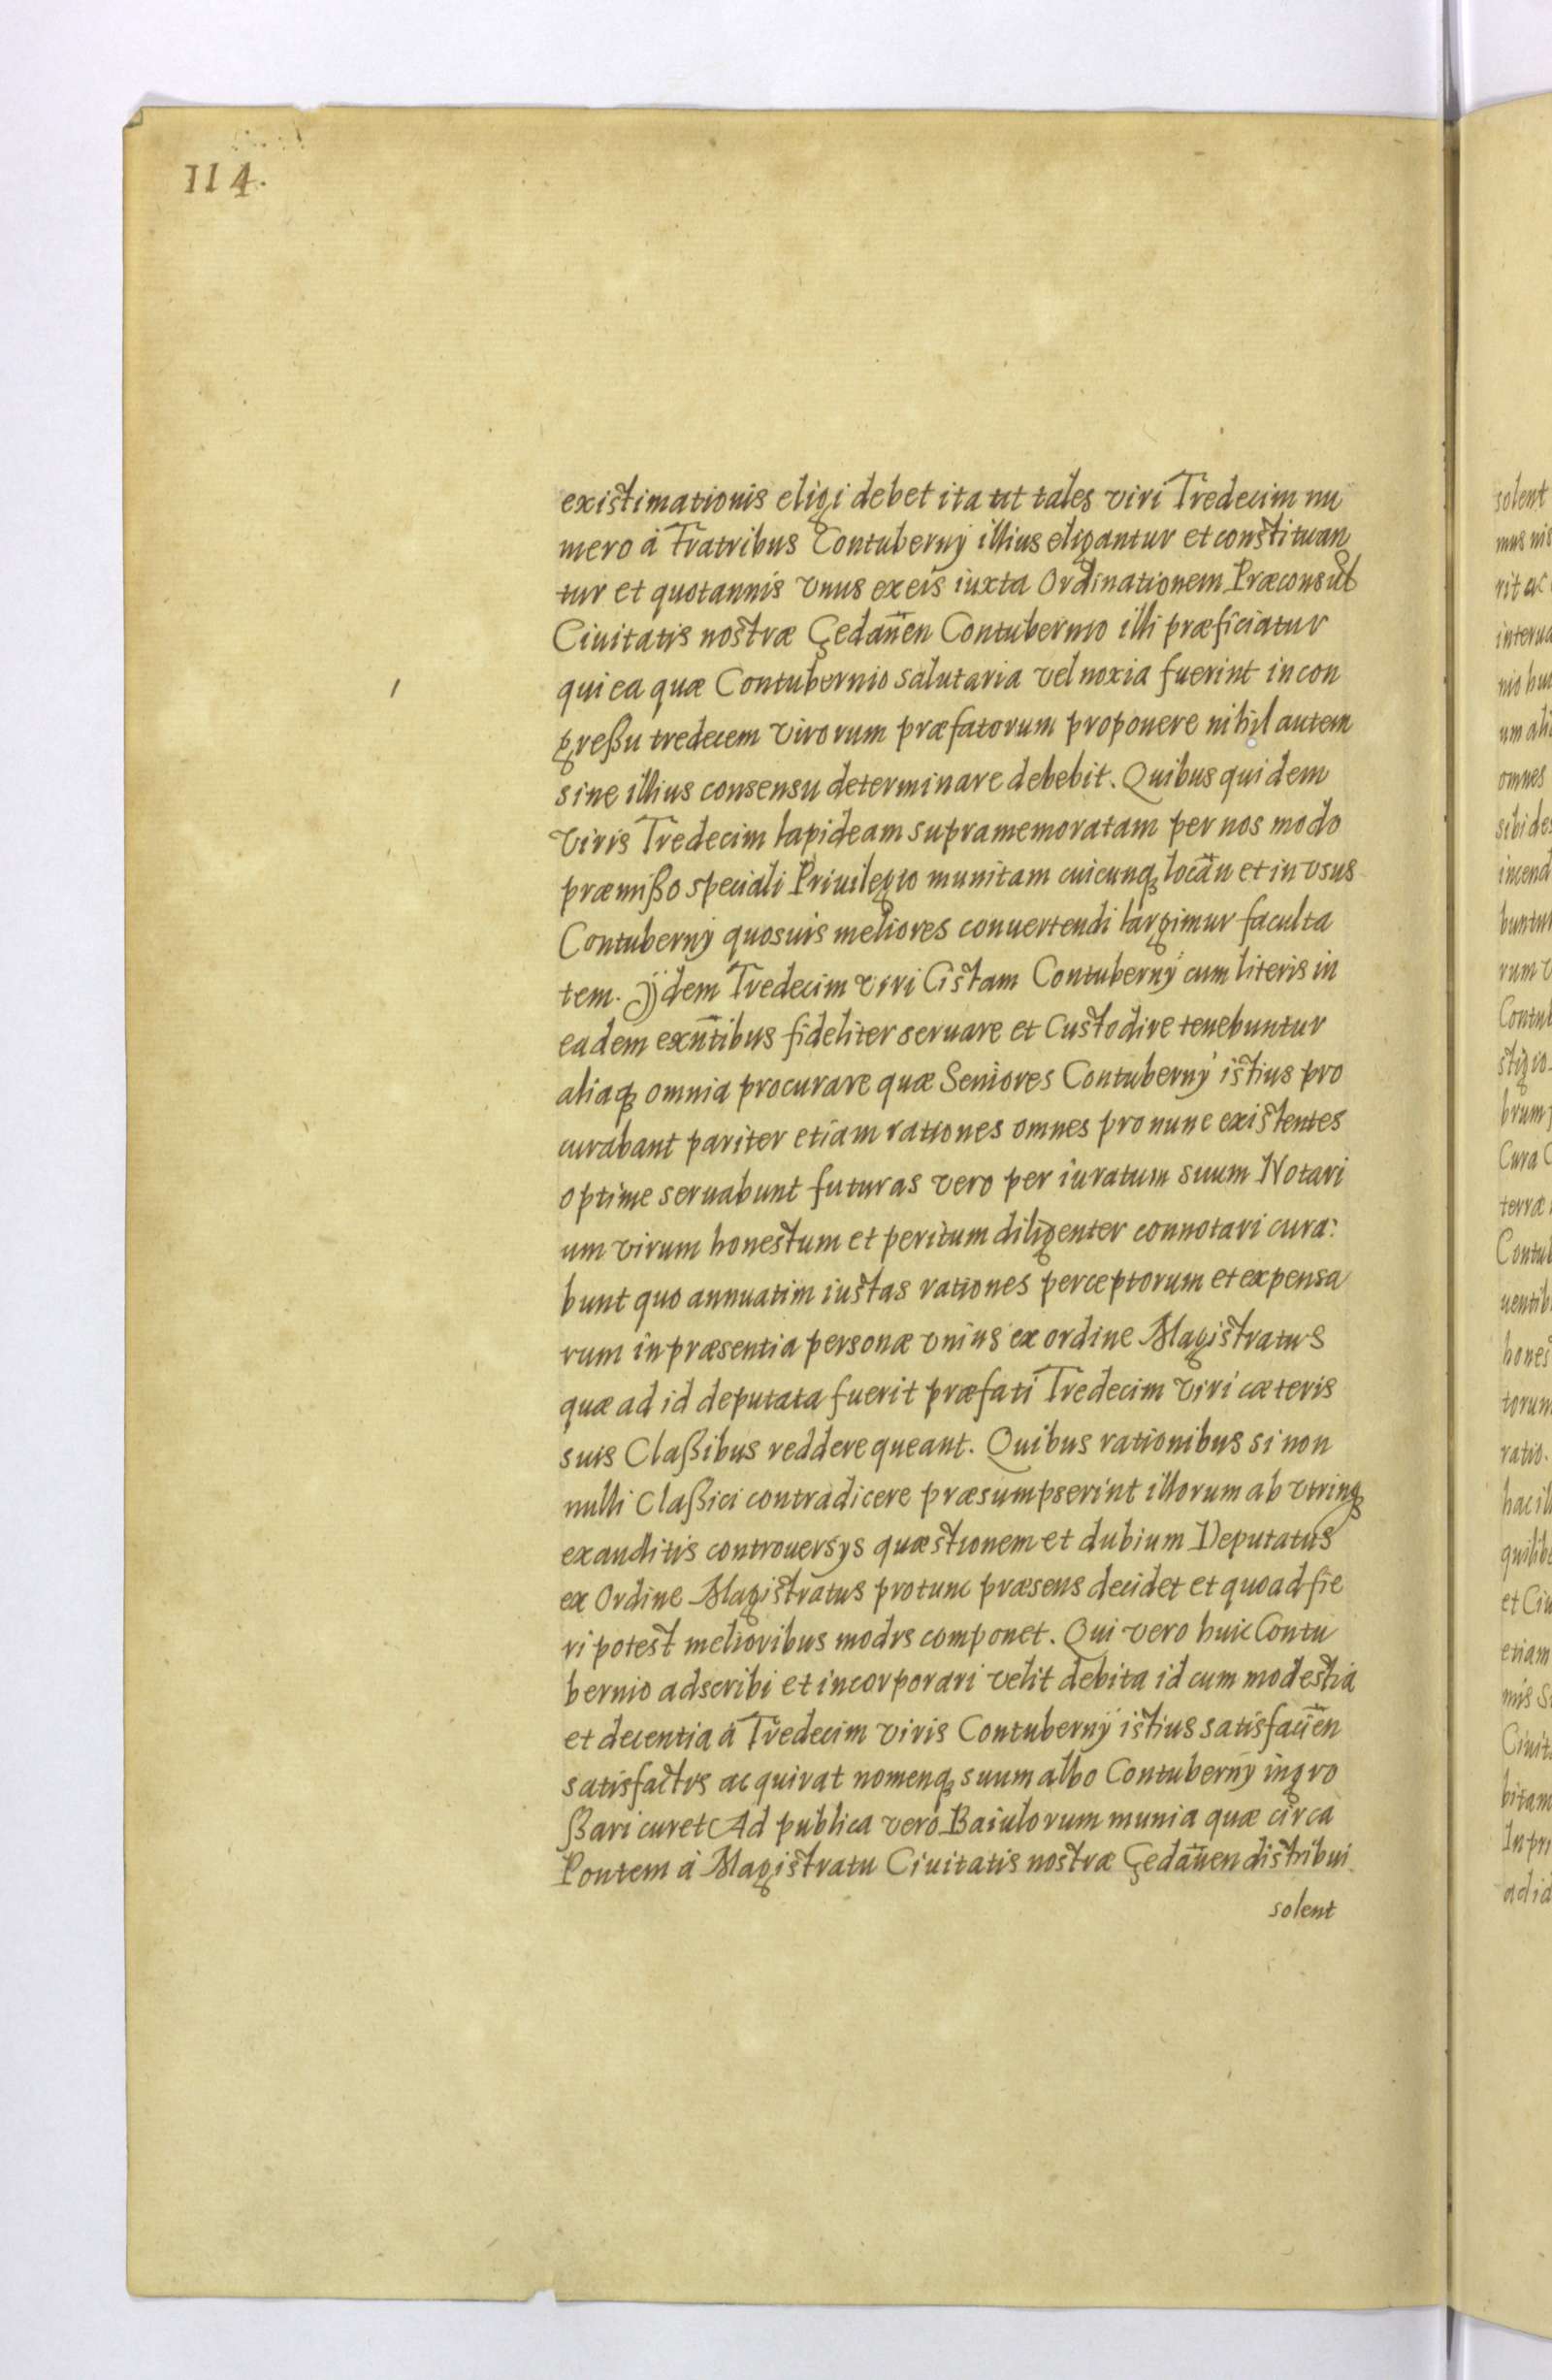 114.
existimationis eligi debet ita ut tales viri Tredecim nu
mero à Fratribus Contubernÿ illius eligantur et constituan
tur et quotannis vnus ex eis iuxta Ordinationem Præconsul
Ciuitatis nostræ Gedan̄en Contubernio illi præficiatur
qui ea quæ Contubernio salutaria vel noxia fuerint in con
greßu tredecem virorum præfatorum proponere nihil autem
sine illius consensu determinare debebit. Quibus quidem
viris Tredecim lapideam supramemoratam per nos modo
præmißo speciali Priuilegio munitam cuicunqꝫ locan̄ et in vsus
Contubernÿ quosuis meliores conuertendi largimur faculta
tem. Ijdem Tredecim viri Cistam Contubernÿ cum literis in
eadem exn̄tibus fideliter seruare et Custodire tenebuntur
aliaqꝫ omnia procurare quæ Seniores Contubernÿ istius pro
curabant pariter etiam rationes omnes pro nunc existentes
optime seruabunt futuras vero per iuratum suum Notari
um virum honestum et peritum diligenter connotari cura:
bunt quo annuatim iustas rationes perceptorum et expensa
rum in præsentia personæ vnius ex ordine Magistratus
quæ ad id deputata fuerit præfati Tredecim viri cæteris
suis Claßibus reddere queant. Quibus rationibus si non
nulli Claßici contradicere præsumpserint illorum ab vtrinqꝫ
exauditis controuersÿs quæstionem et dubium Deputatus
ex Ordine Magistratus protunc præsens decidet et quoad fie
ri potest melioribus modis componet. Qui vero huic Contu
bernio adscribi et incorporari velit debita id cum modestia
et decentia à Tredecim viris Contubernÿ istius satisfacien̄
satisfactis acquirat nomenqꝫ suum albo Contubernÿ ingro
ßari curet Ad publica vero Baiulorum munia quæ circa
Pontem à Magistratu Ciuitatis nostræ Gedan̄en distribui
solent